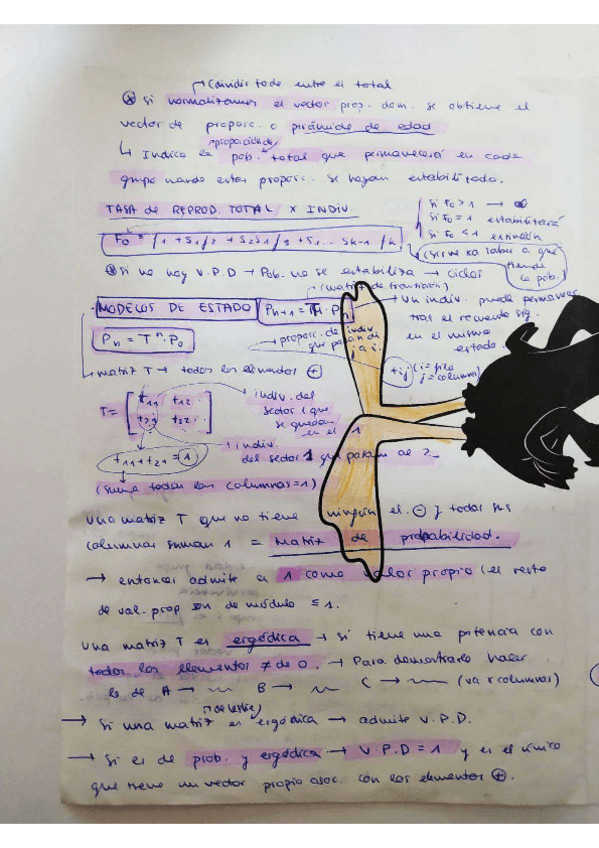 (dividir todo entre el total
⊛ Si normalizamos el vector prop. dom. se obtiene el
vector de proporc. o pirámide de edad
↳ Indica la pob. total que permanecerá en cada
grupo cuando estas proporc. se hayan estabilizado.
TASA de REPROD. TOTAL x INDIV.
F0 = f1 + S1f2 + S2S1f3 + S1... Sk-1 fk
si F0 > 1 → ∞
si F0 = 1 estabilizará
si F0 < 1 extinción
(sirve xa saber a qué tiende la pob.)
⊛ si no hay V.P.D → Pob. no se estabiliza → ciclos
(matriz de transición)
MODELOS DE ESTADO Pn+1 = T · Pn
Pn = T^n · P0
→ un indiv. puede permanecer
tras el recuento sig.
en el mismo
estado.
proporc. de indiv
que pasan de
j a i.
tij (i = fila
j = columna)
↳ matriz T → todos los elementos ⊕
T = [t11 t12 ..
t21 t22 ..]
indiv. del
sector 1 que
se quedan
en el 1
t11 + t21 = 1
→ indiv.
del sector 1 que pasan al 2
(suma todas las columnas = 1)
Una matriz T que no tiene ningún el. ⊖ y todas sus
columnas suman 1 = Matriz de probabilidad.
→ entonces admite el 1 como valor propio (el resto
de val. prop son de módulo ≤ 1.
Una matriz T es ergódica → si tiene una potencia con
todos los elementos ≠ de 0. → Para demostrarlo hacer
lo de A → B → C → (va x columnas)
(de Leslie)
→ Si una matriz es ergódica → admite V.P.D.
→ Si es de prob. y ergódica → V.P.D = 1 y es el único
que tiene un vector propio asoc. con los elementos ⊕.